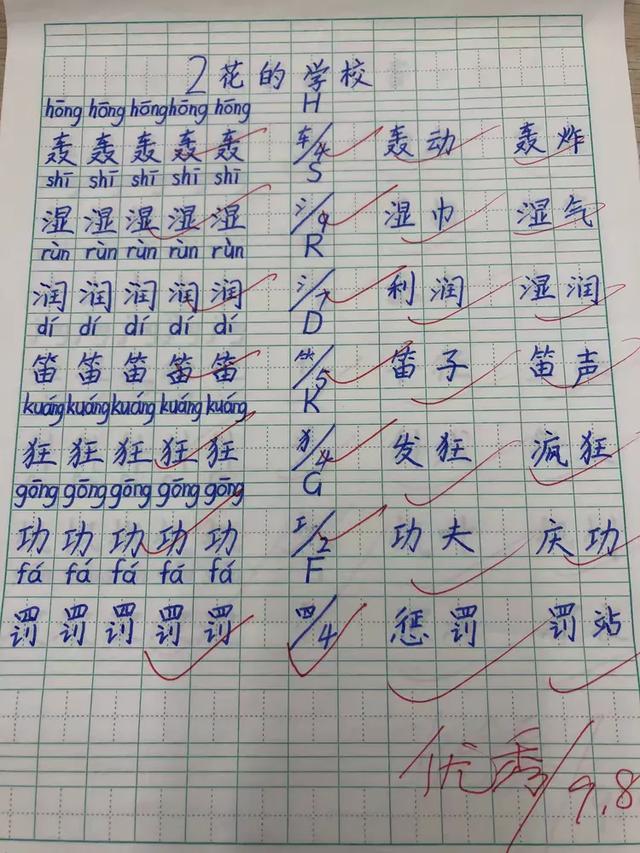 2 花的学校
hōng hōng hōng hōng hōng H
轰 轰 轰 轰 轰 车/4 轰动 轰炸
shī shī shī shī shī S
湿 湿 湿 湿 湿 氵/9 湿巾 湿气
rùn rùn rùn rùn rùn R
润 润 润 润 润 氵/7 利润 湿润
dí dí dí dí dí D
笛 笛 笛 笛 笛 ⺮/5 笛子 笛声
kuáng kuáng kuáng kuáng kuáng K
狂 狂 狂 狂 狂 犭/4 发狂 疯狂
gōng gōng gōng gōng gōng G
功 功 功 功 功 工/2 功夫 庆功
fá fá fá fá fá F
罚 罚 罚 罚 罚 罒/4 惩罚 罚站
优秀/9.8